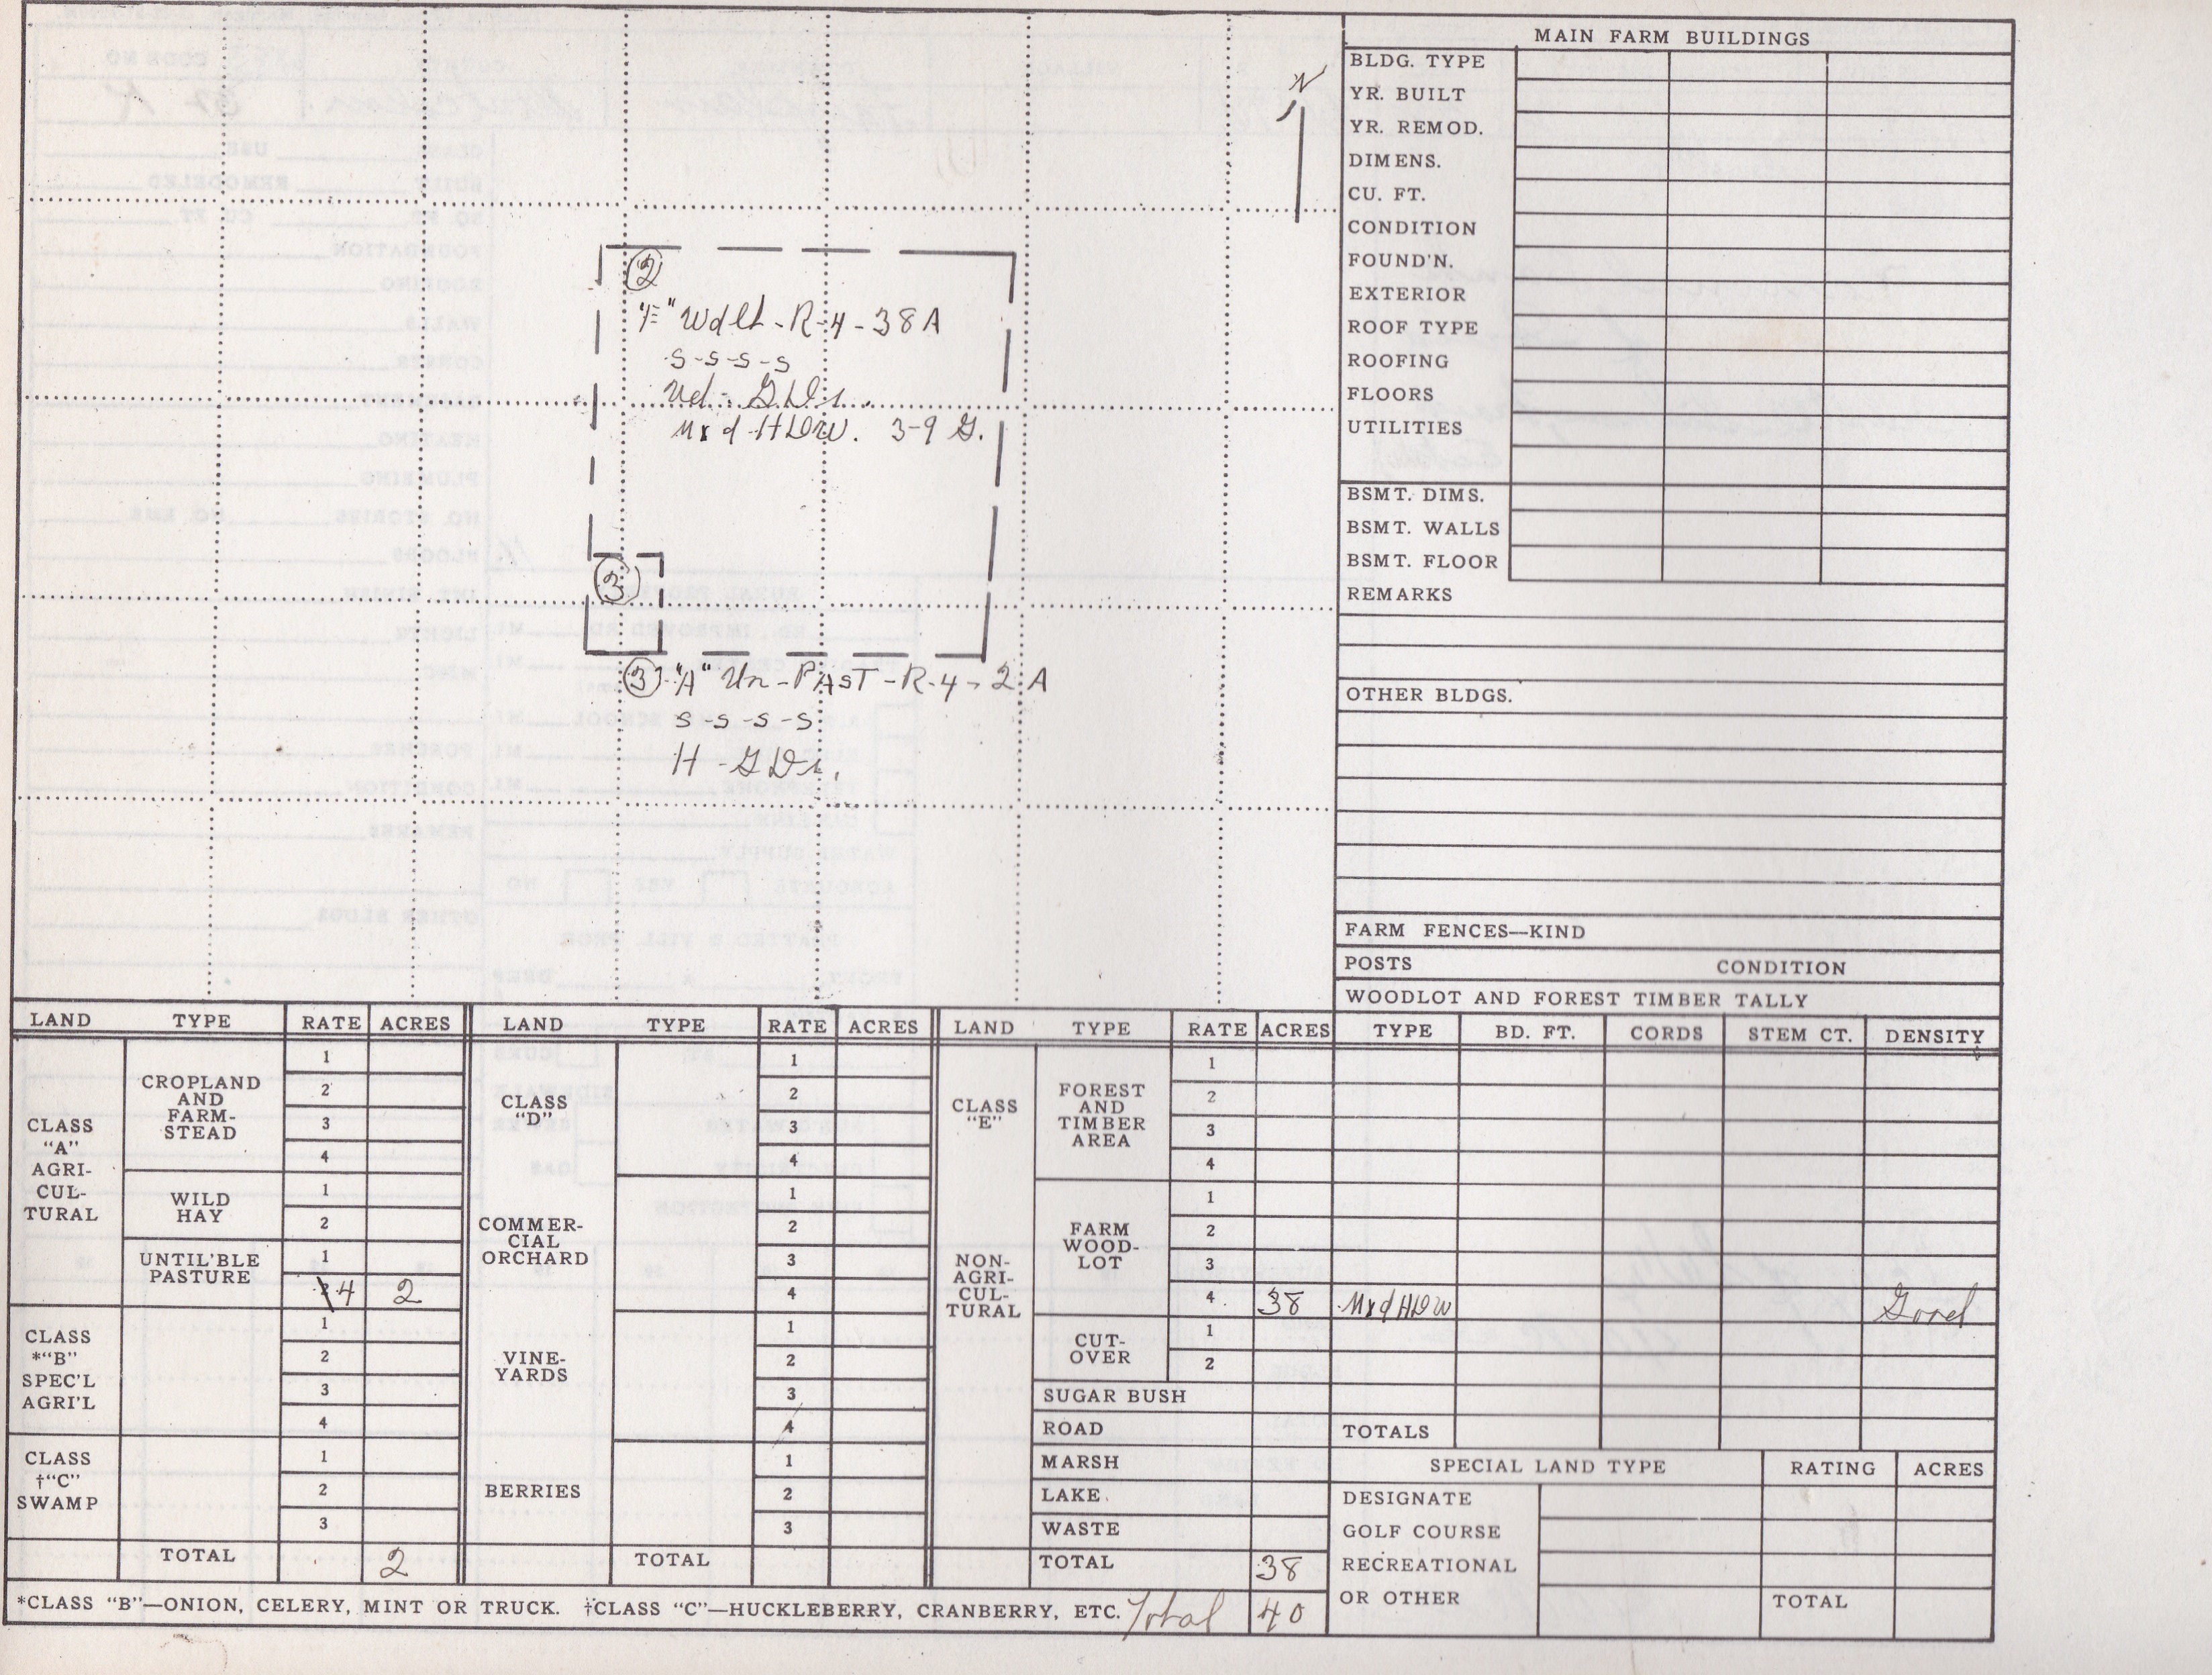 N
②
"E" Wdlt - R-4 - 38 A
S-S-S-S
Ud - G.Dr.
Mxd HDW. 3-9 G.
③
③ "A" Un-PAST-R-4-2 A
S-S-S-S
H-G Dr.
MAIN FARM BUILDINGS
BLDG. TYPE
YR. BUILT
YR. REMOD.
DIMENS.
CU. FT.
CONDITION
FOUND'N.
EXTERIOR
ROOF TYPE
ROOFING
FLOORS
UTILITIES
BSMT. DIMS.
BSMT. WALLS
BSMT. FLOOR
REMARKS
OTHER BLDGS.
FARM FENCES—KIND
POSTS CONDITION
WOODLOT AND FOREST TIMBER TALLY
TYPE BD. FT. CORDS STEM CT. DENSITY
Mxd HDW Good
TOTALS
LAND TYPE RATE ACRES
CLASS
"A"
AGRI-
CUL-
TURAL
CROPLAND
AND
FARM-
STEAD
1
2
3
4
WILD
HAY
1
2
UNTIL'BLE
PASTURE
1
2 4 2
CLASS
*"B"
SPEC'L
AGRI'L
1
2
3
4
CLASS
†"C"
SWAMP
1
2
3
TOTAL 2
LAND TYPE RATE ACRES
CLASS
"D"
1
2
3
4
COMMER-
CIAL
ORCHARD
1
2
3
4
VINE-
YARDS
1
2
3
4
BERRIES
1
2
3
TOTAL
LAND TYPE RATE ACRES
CLASS
"E"
NON-
AGRI-
CUL-
TURAL
FOREST
AND
TIMBER
AREA
1
2
3
4
FARM
WOOD-
LOT
1
2
3
4 38
CUT-
OVER
1
2
SUGAR BUSH
ROAD
MARSH
LAKE
WASTE
TOTAL 38
SPECIAL LAND TYPE RATING ACRES
DESIGNATE
GOLF COURSE
RECREATIONAL
OR OTHER TOTAL
*CLASS "B"—ONION, CELERY, MINT OR TRUCK. †CLASS "C"—HUCKLEBERRY, CRANBERRY, ETC. Total 40